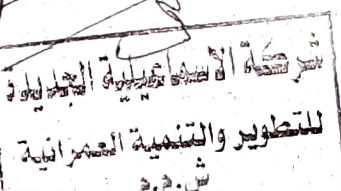 شركة الاسماعيلية الجديدة
للتطوير والتنمية العمرانية
ش.م.م